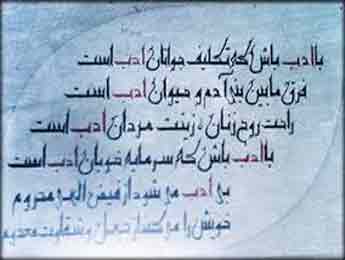 باادب باش که تکلیف جوانان ادب است
فرق مابین بنی آدم و حیوان ادب است
راحت روح زنان، زینت مردان ادب است
باادب باش که سرمایه خوبان ادب است
بی ادب می شود از فیض الهی محروم
خویش را می کند از جهل و شقاوت معدوم